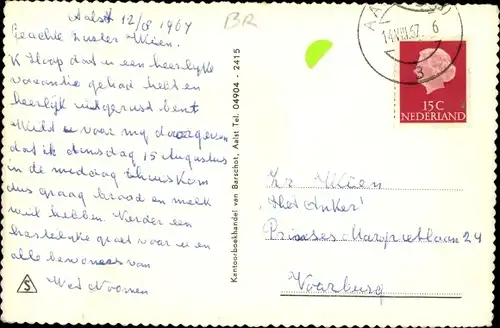 Aalst 12/8 1967
BR
Geachte zuster Wiën.
K Hoop dat u een heerlijke
vacantie gehad hebt en
heerlijk uitgerust bent
Wild u voor my doorgeven
dat ik dinsdag 15 Augustus
in de middag thuis kom
dus graag brood en melk
wil hebben. Verder een
hartelijke groet voor u en
alle bewoners van
Wed Noomen
S
Kantoorboekhandel van Barschot, Aalst Tel. 04904 - 2415
14.VIII.67. 6
3
15 C
NEDERLAND
Zr Wiën
"Het Anker"
Prinses Margrietlaan 24
Voorburg